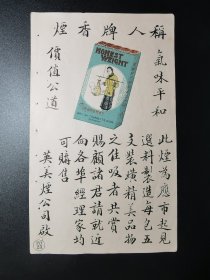 稱人牌香煙
氣味平和
價值公道
HONEST
WEIGHT
此煙為應市起見
選料製造每包五
支裝璜精美品物
之佳吸者共賞
賜顧諸君請就近
向各埠經理家均
可賒售
英美煙公司啟